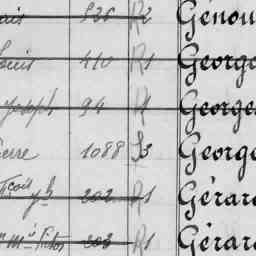 ais 836 R2 Génou
Louis 410 R1 George
Joseph 94 R1 George
erre 1088 S3 George
Fçois Jh 202 R1 Gérard
Mé Victor 203 R1 Gérard